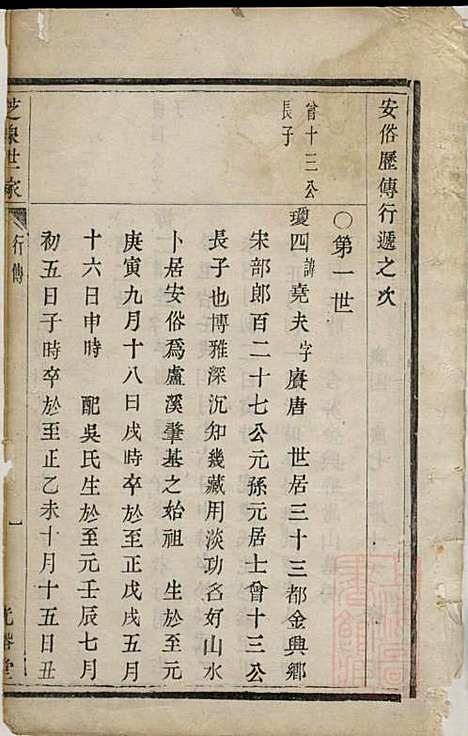 安俗歷傳行遞之次
〇第一世
曾十三公
長子
瓊四諱堯夫字賡唐 世居三十三都金興鄉
宋部郎百二十七公元孫元居士曾十三公
長子也博雅深沉知幾藏用淡功名好山水
卜居安俗爲盧溪肇基之始祖 生於至元
庚寅九月十八日戌時卒於至正戊戌五月
十六日申時 配吳氏生於至元壬辰七月
初五日子時卒於至正乙未十月十五日丑
世家
行傳
一
堂